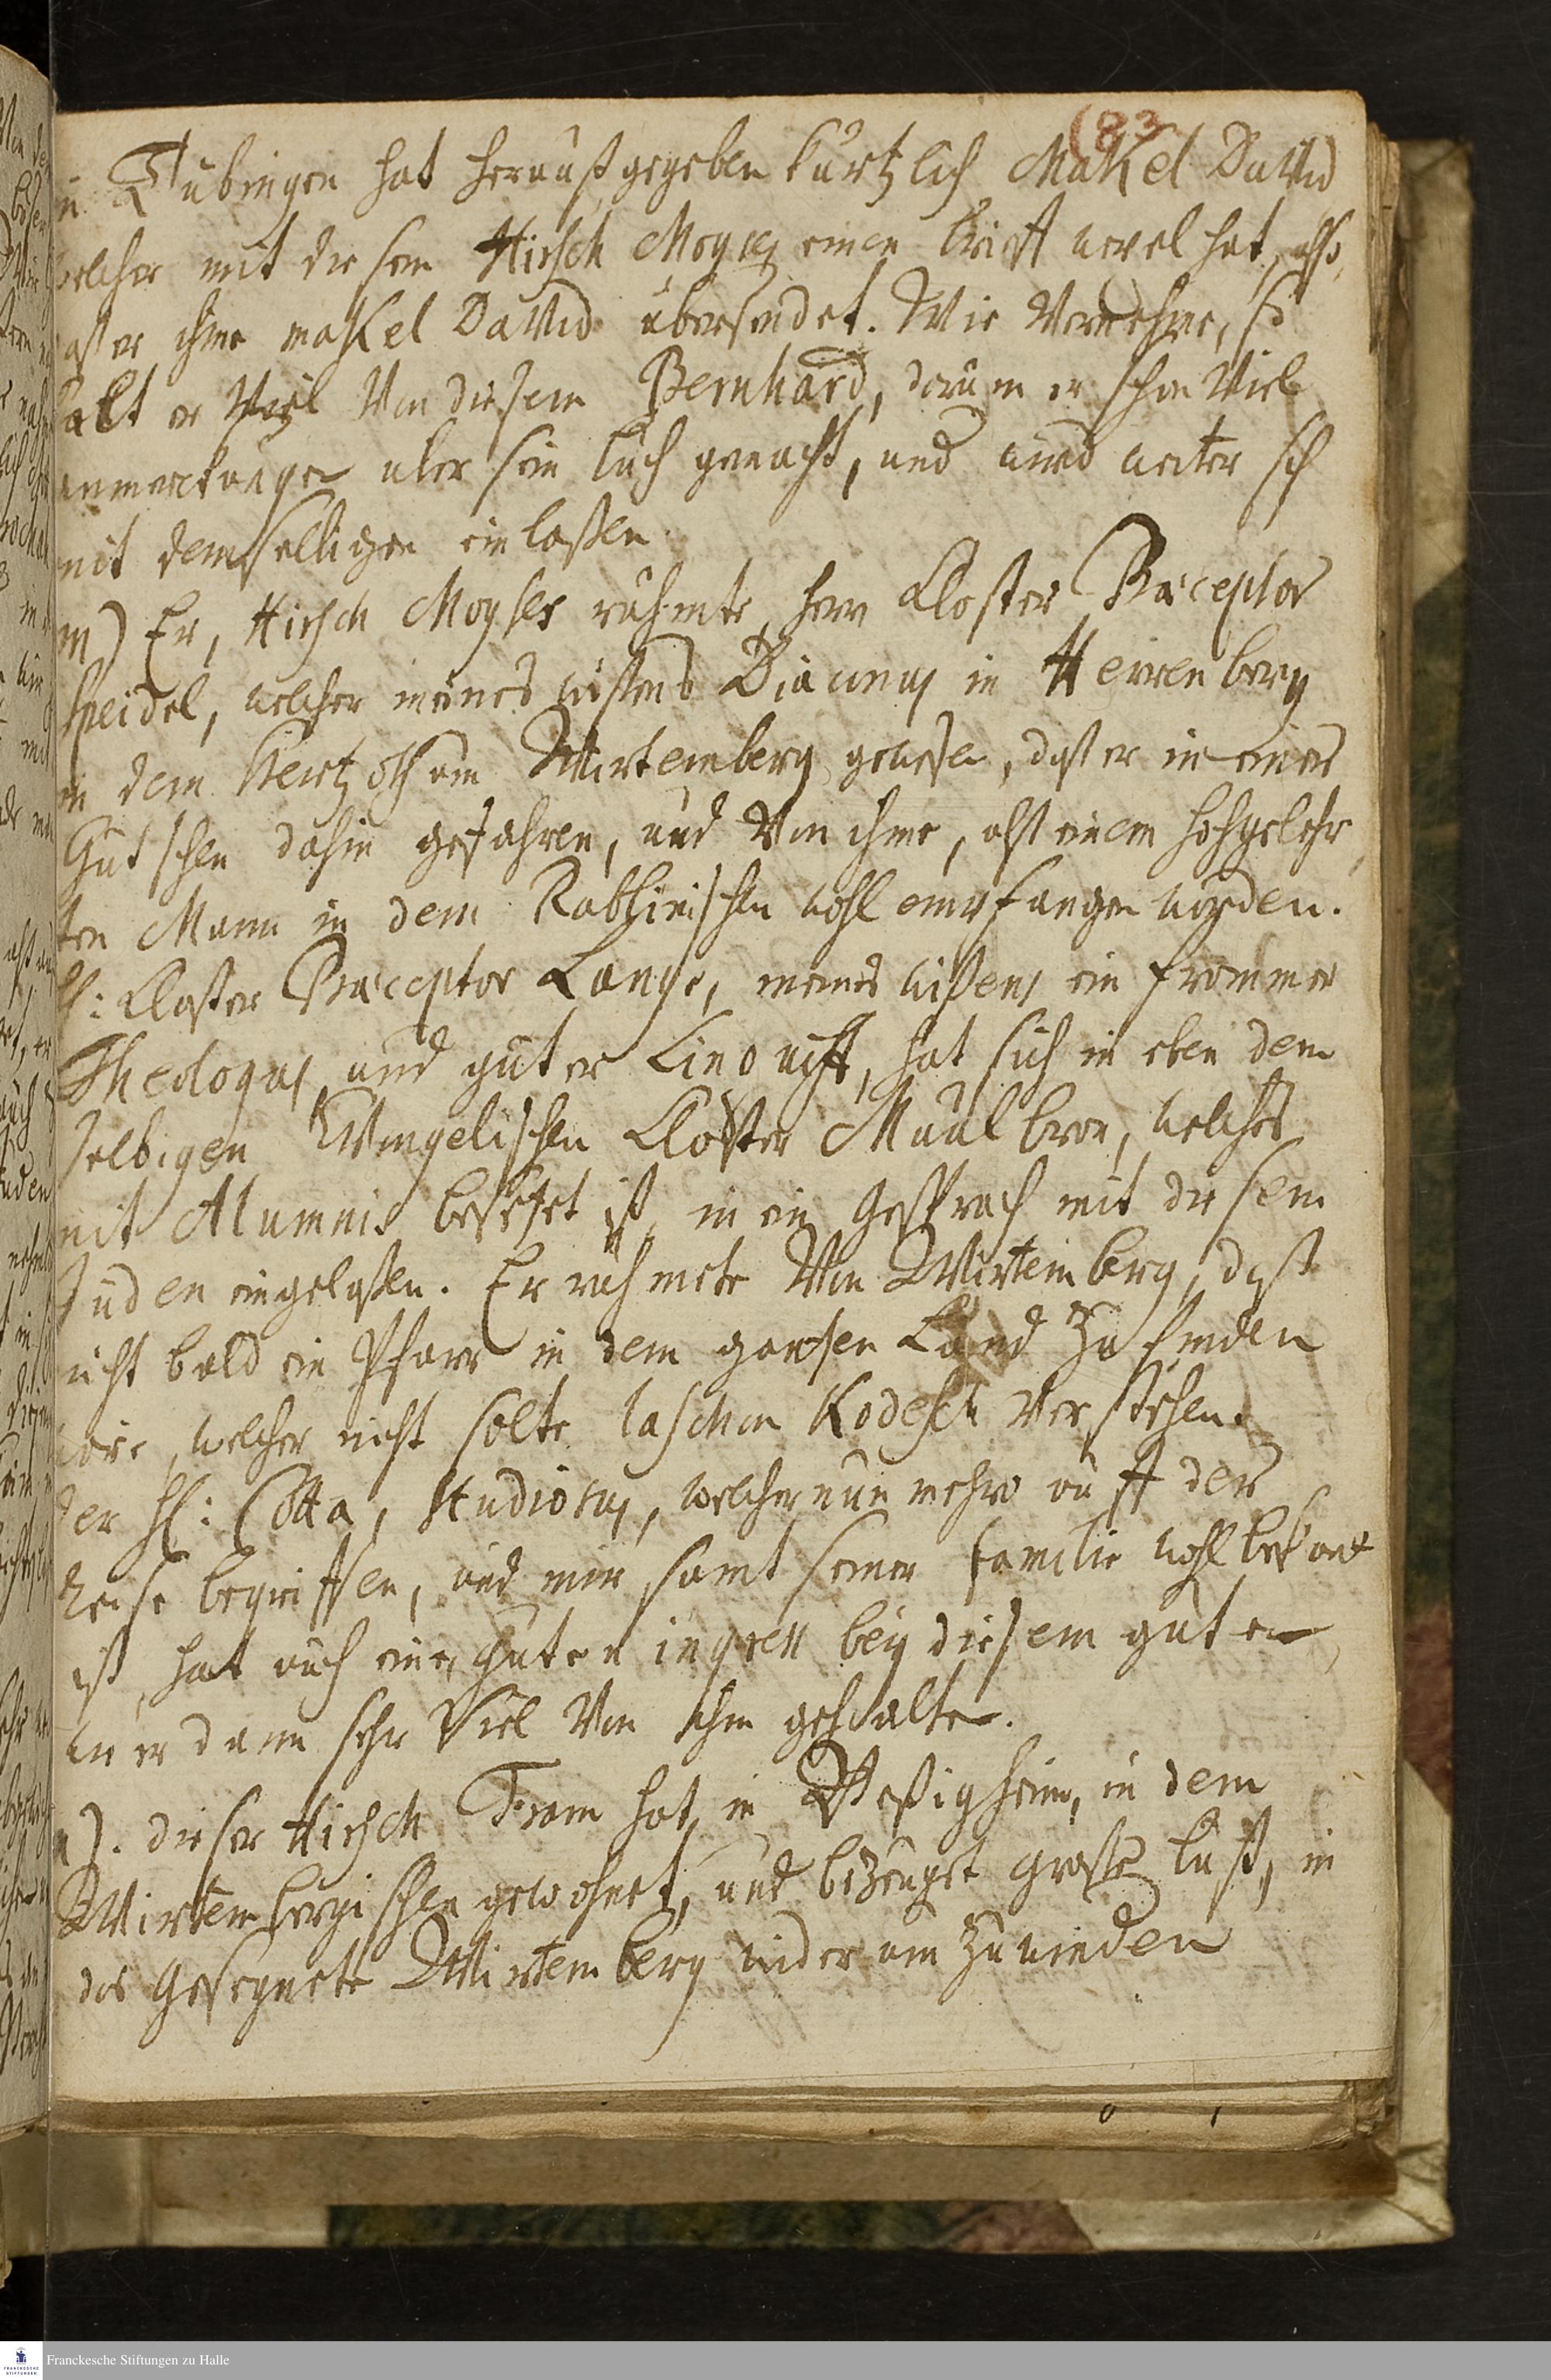 (83
in Tübingen hat heraußgegeben kürtzlich Makel David
welcher mit diesem Hirsch Moyses einen brieff wexel hat, also,
daß er ihme makel David übersendet. Wie Vernehme, so
halt er Viel Von diesem Bernhard, darum er schon Viele
anmerckungen uber sein buch gemacht, und wird weiter sich
mit demselbigen einlaßen.
m) Er, Hirsch Moyses rühmte, herr Closter Præceptor
Speidel, welcher meines wißens Diaconus in Herrenberg
in dem Hertzothum Wirtemberg gewesen, daß er in einer
Gutschen dahin gefahren, und Von ihme, alß einem hochgelehr,
ten Mann in dem Rabbinischen wohl empfangen worden.
H: Closter Præceptor Lange, meines wißens ein frommer
Theologus und guter Linguist, hat sich in eben dem
selbigen Evangelischen Closter Maulbron, welches
mit Alumnis besetzet ist, in ein Gespräch mit diesem
Juden eingelaßen. Er rühmete Von Wirtemberg, daß
nicht bald ein Pfarr in dem gantzen Land zu finden
wäre, welcher nicht solte laschon Kodesch Verstehen.
der H: Cotta, Studiosus, welcher nun mehro auff der
Reise begriffen, und mir samt seiner familie wohl bekant
ist, hat auch einen guten ingreß bey diesem guten,
wie er dann sehr Viel Von ihm gehalten.
n). dieser Hirsch From hat in Beßigheim, in dem
Wirtembergischen gewohnet, und bezeuget große lust, in
das Gesegnete Wirtemberg widerum zu
Franckesche Stiftungen zu Halle